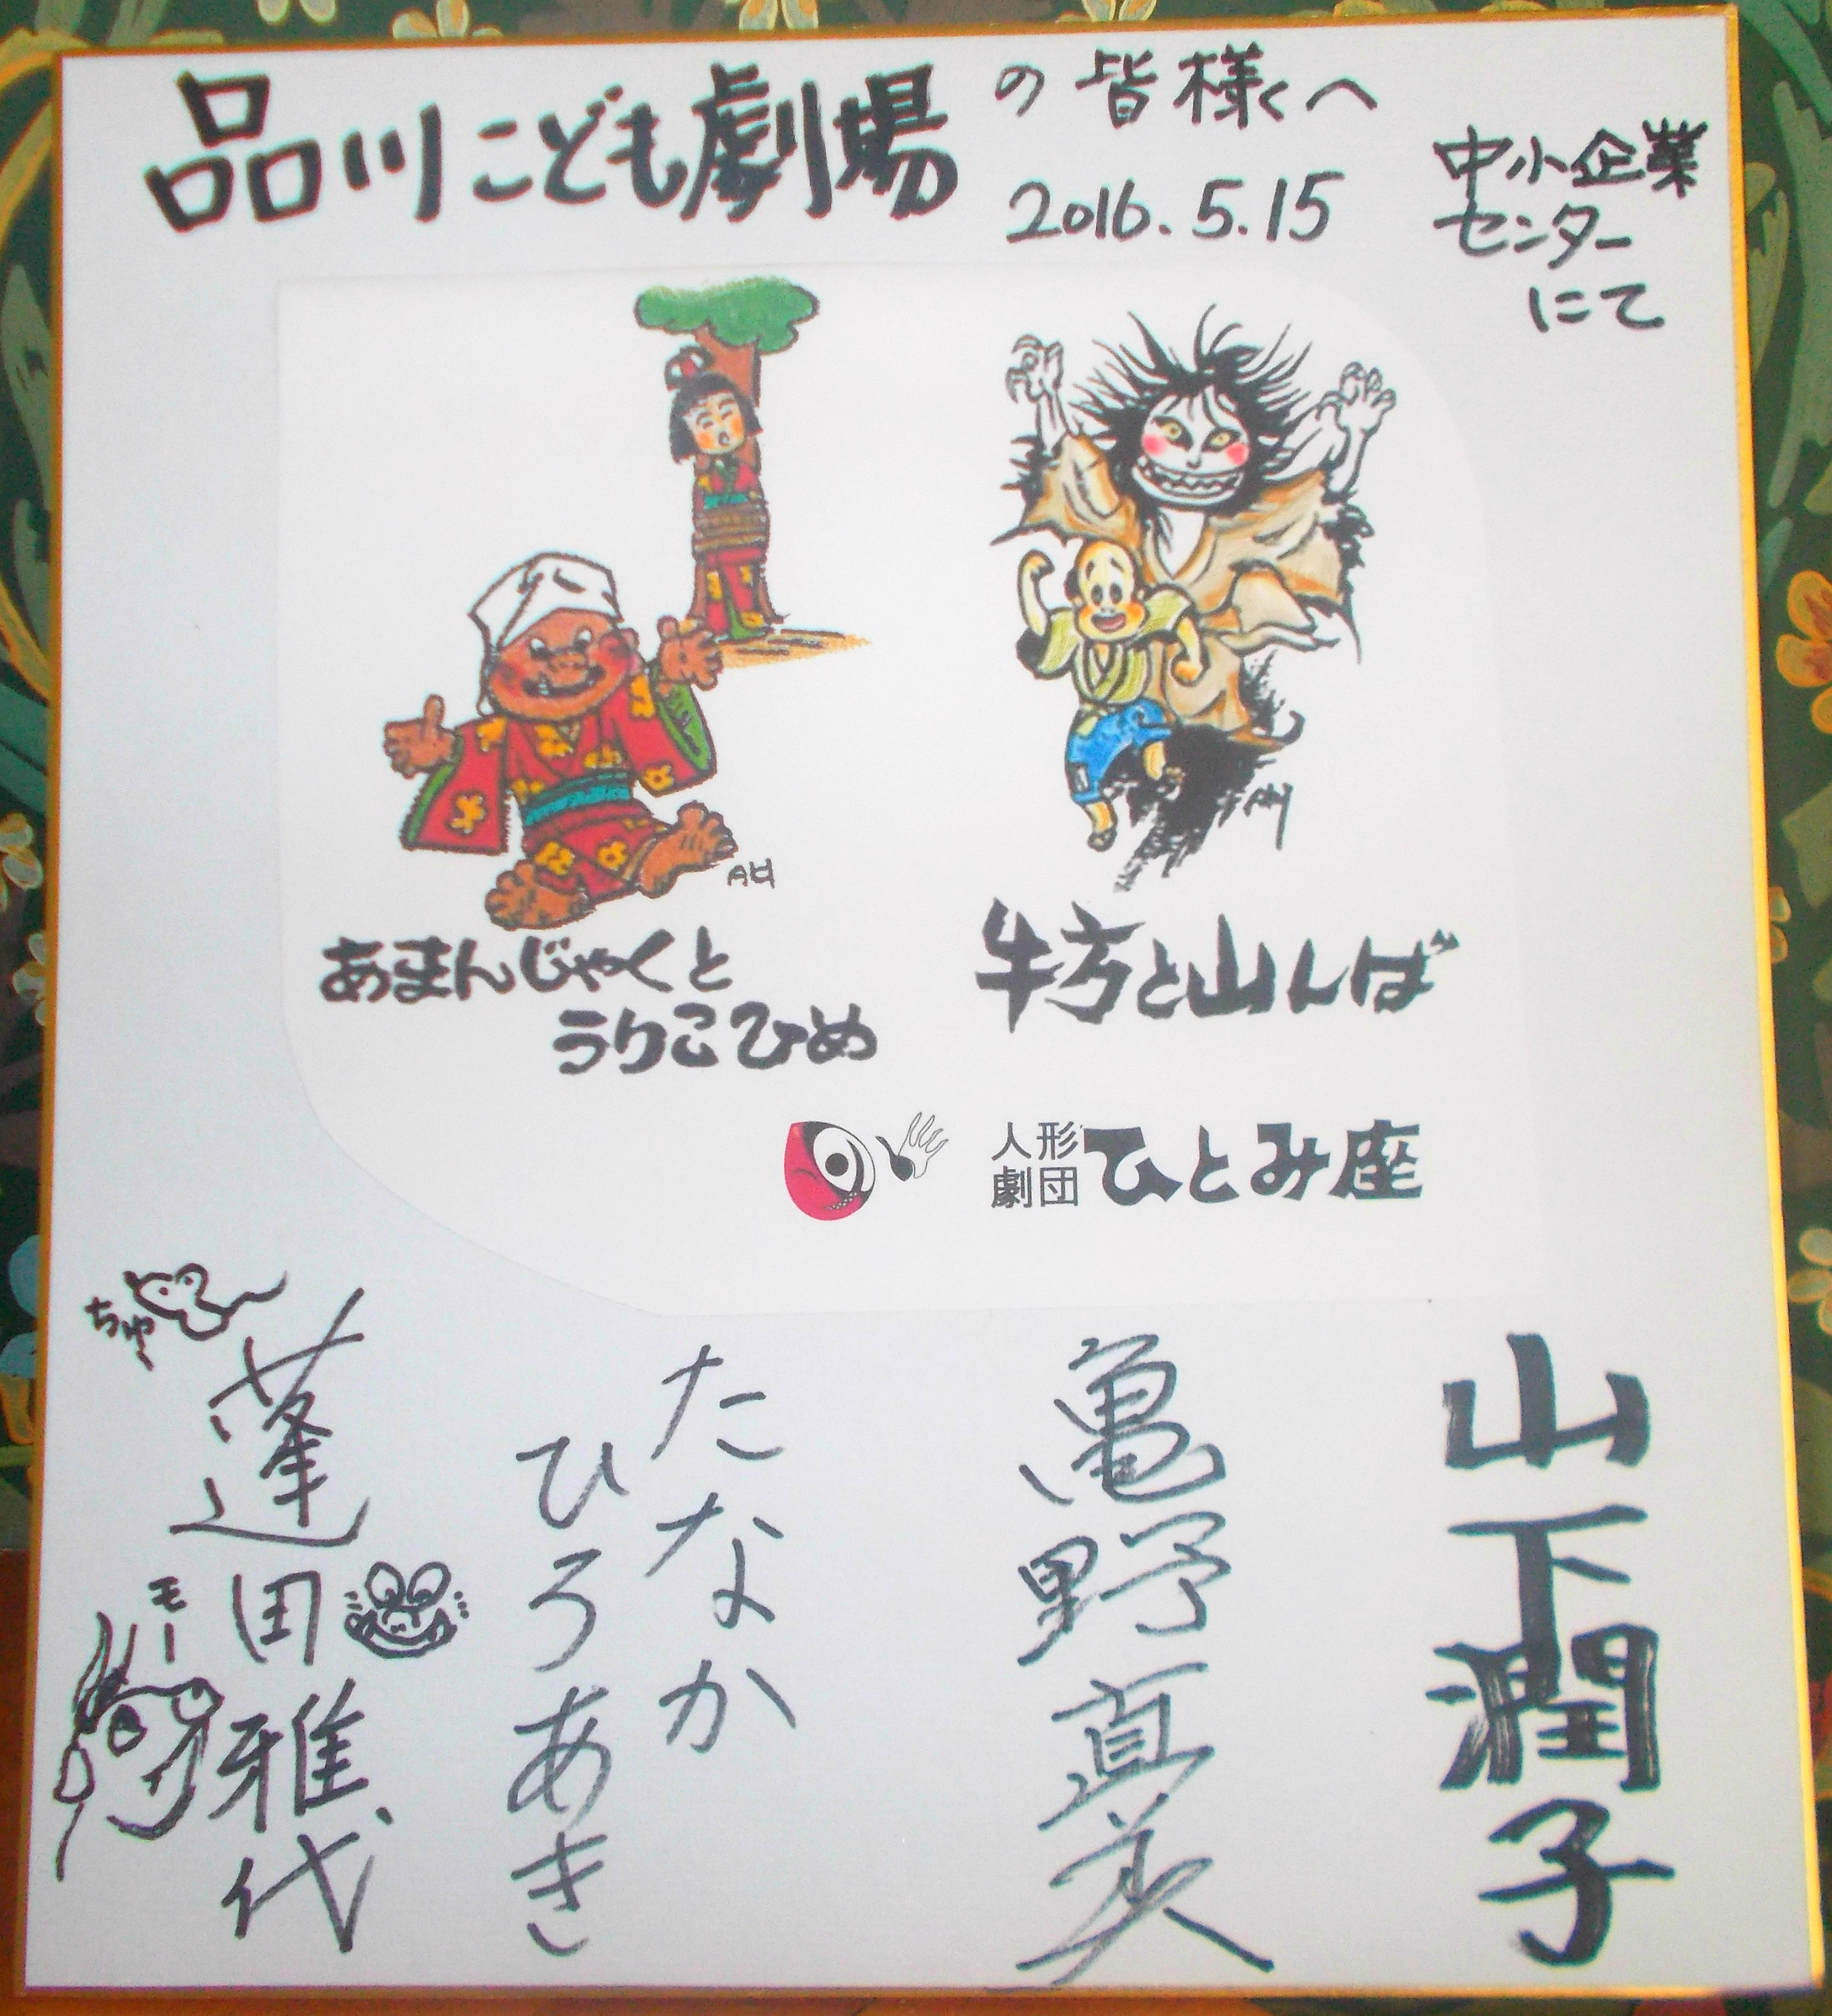 品川こども劇場の皆様へ
2016.5.15
中小企業
センター
にて
あまんじゃくと
うりこひめ
牛方と山んば
人形
劇団
ひとみ座
山下潤子
亀野直美
たなか
ひろあき
蓬田雅代
ちゅー
モー